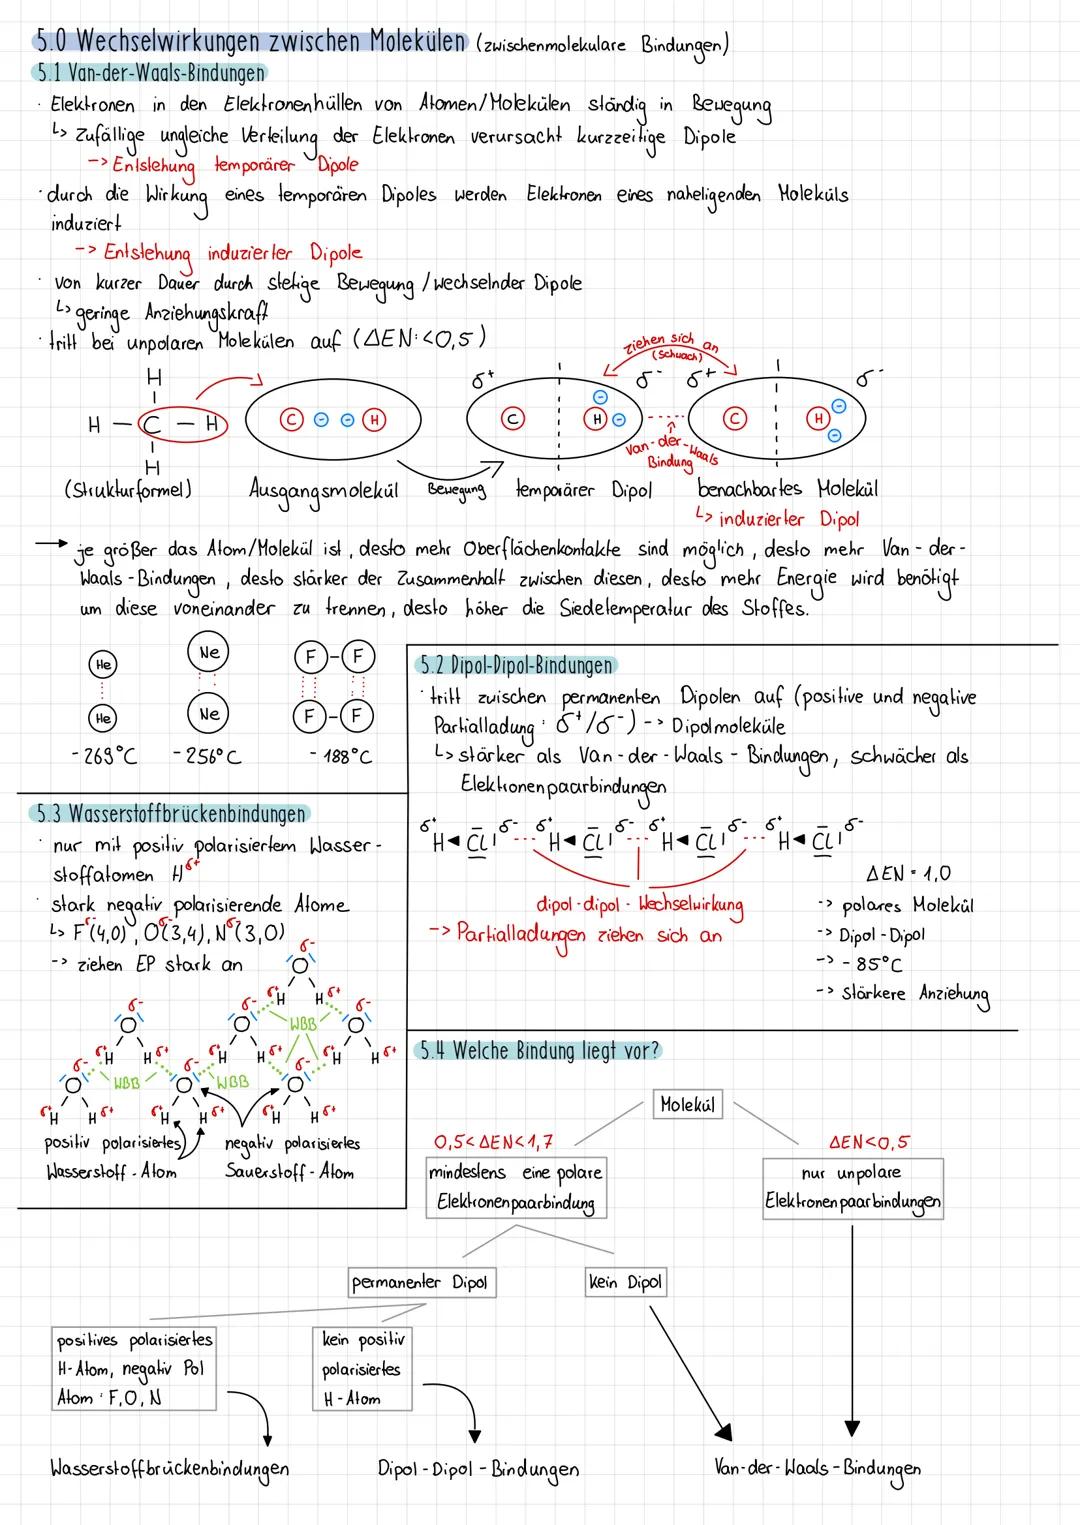 5.0 Wechselwirkungen zwischen Molekülen (zwischenmolekulare Bindungen)
5.1 Van-der-Waals-Bindungen
· Elektronen in den Elektronenhüllen von Atomen/Molekülen ständig in Bewegung
↳ zufällige ungleiche Verteilung der Elektronen verursacht kurzzeitige Dipole
-> Entstehung temporärer Dipole
· durch die Wirkung eines temporären Dipoles werden Elektronen eines naheligenden Moleküls
induziert
-> Entstehung induzierter Dipole
· von kurzer Dauer durch stetige Bewegung / wechselnder Dipole
↳ geringe Anziehungskraft
· tritt bei unpolaren Molekülen auf (ΔEN: <0,5)
ziehen sich an
(schwach)
H
H – C – H
H
C ⊖ ⊖ H
δ+ δ- δ+ δ-
C H ⊖ ⊖
C H ⊖ ⊖
Van-der-Waals
Bindung
(Strukturformel) Ausgangsmolekül Bewegung temporärer Dipol benachbartes Molekül
↳ induzierter Dipol
→ je größer das Atom/Molekül ist, desto mehr Oberflächenkontakte sind möglich, desto mehr Van-der-
Waals-Bindungen, desto stärker der Zusammenhalt zwischen diesen, desto mehr Energie wird benötigt
um diese voneinander zu trennen, desto höher die Siedetemperatur des Stoffes.
He Ne F-F
He Ne F-F
-269°C -256°C -188°C
5.2 Dipol-Dipol-Bindungen
· tritt zwischen permanenten Dipolen auf (positive und negative
Partialladung: δ+/δ-) -> Dipolmoleküle
↳ stärker als Van-der-Waals-Bindungen, schwächer als
Elektronenpaarbindungen
δ+ δ- δ+ δ- δ+ δ- δ+ δ-
H◄Cl --- H◄Cl --- H◄Cl --- H◄Cl
dipol-dipol-Wechselwirkung
-> Partialladungen ziehen sich an
ΔEN = 1,0
-> polares Molekül
-> Dipol-Dipol
-> -85°C
-> stärkere Anziehung
5.3 Wasserstoffbrückenbindungen
· nur mit positiv polarisiertem Wasser-
stoffatomen Hδ+
· stark negativ polarisierende Atome
↳ Fδ-(4,0), Oδ-(3,4), Nδ-(3,0)
-> ziehen EP stark an
δ-
O
δ+ H H δ+
δ- O δ- O δ- O
WBB
δ+ H H δ+ δ+ H H δ+ δ+ H H δ+
δ- O δ- O δ- O
WBB WBB
δ+ H H δ+ δ+ H H δ+ δ+ H H δ+
positiv polarisiertes
Wasserstoff-Atom
negativ polarisiertes
Sauerstoff-Atom
5.4 Welche Bindung liegt vor?
Molekül
0,5<ΔEN<1,7
mindestens eine polare
Elektronenpaarbindung
ΔEN<0,5
nur unpolare
Elektronenpaarbindungen
permanenter Dipol
kein Dipol
positives polarisiertes
H-Atom, negativ Pol
Atom: F,O,N
kein positiv
polarisiertes
H-Atom
Wasserstoffbrückenbindungen
Dipol-Dipol-Bindungen
Van-der-Waals-Bindungen